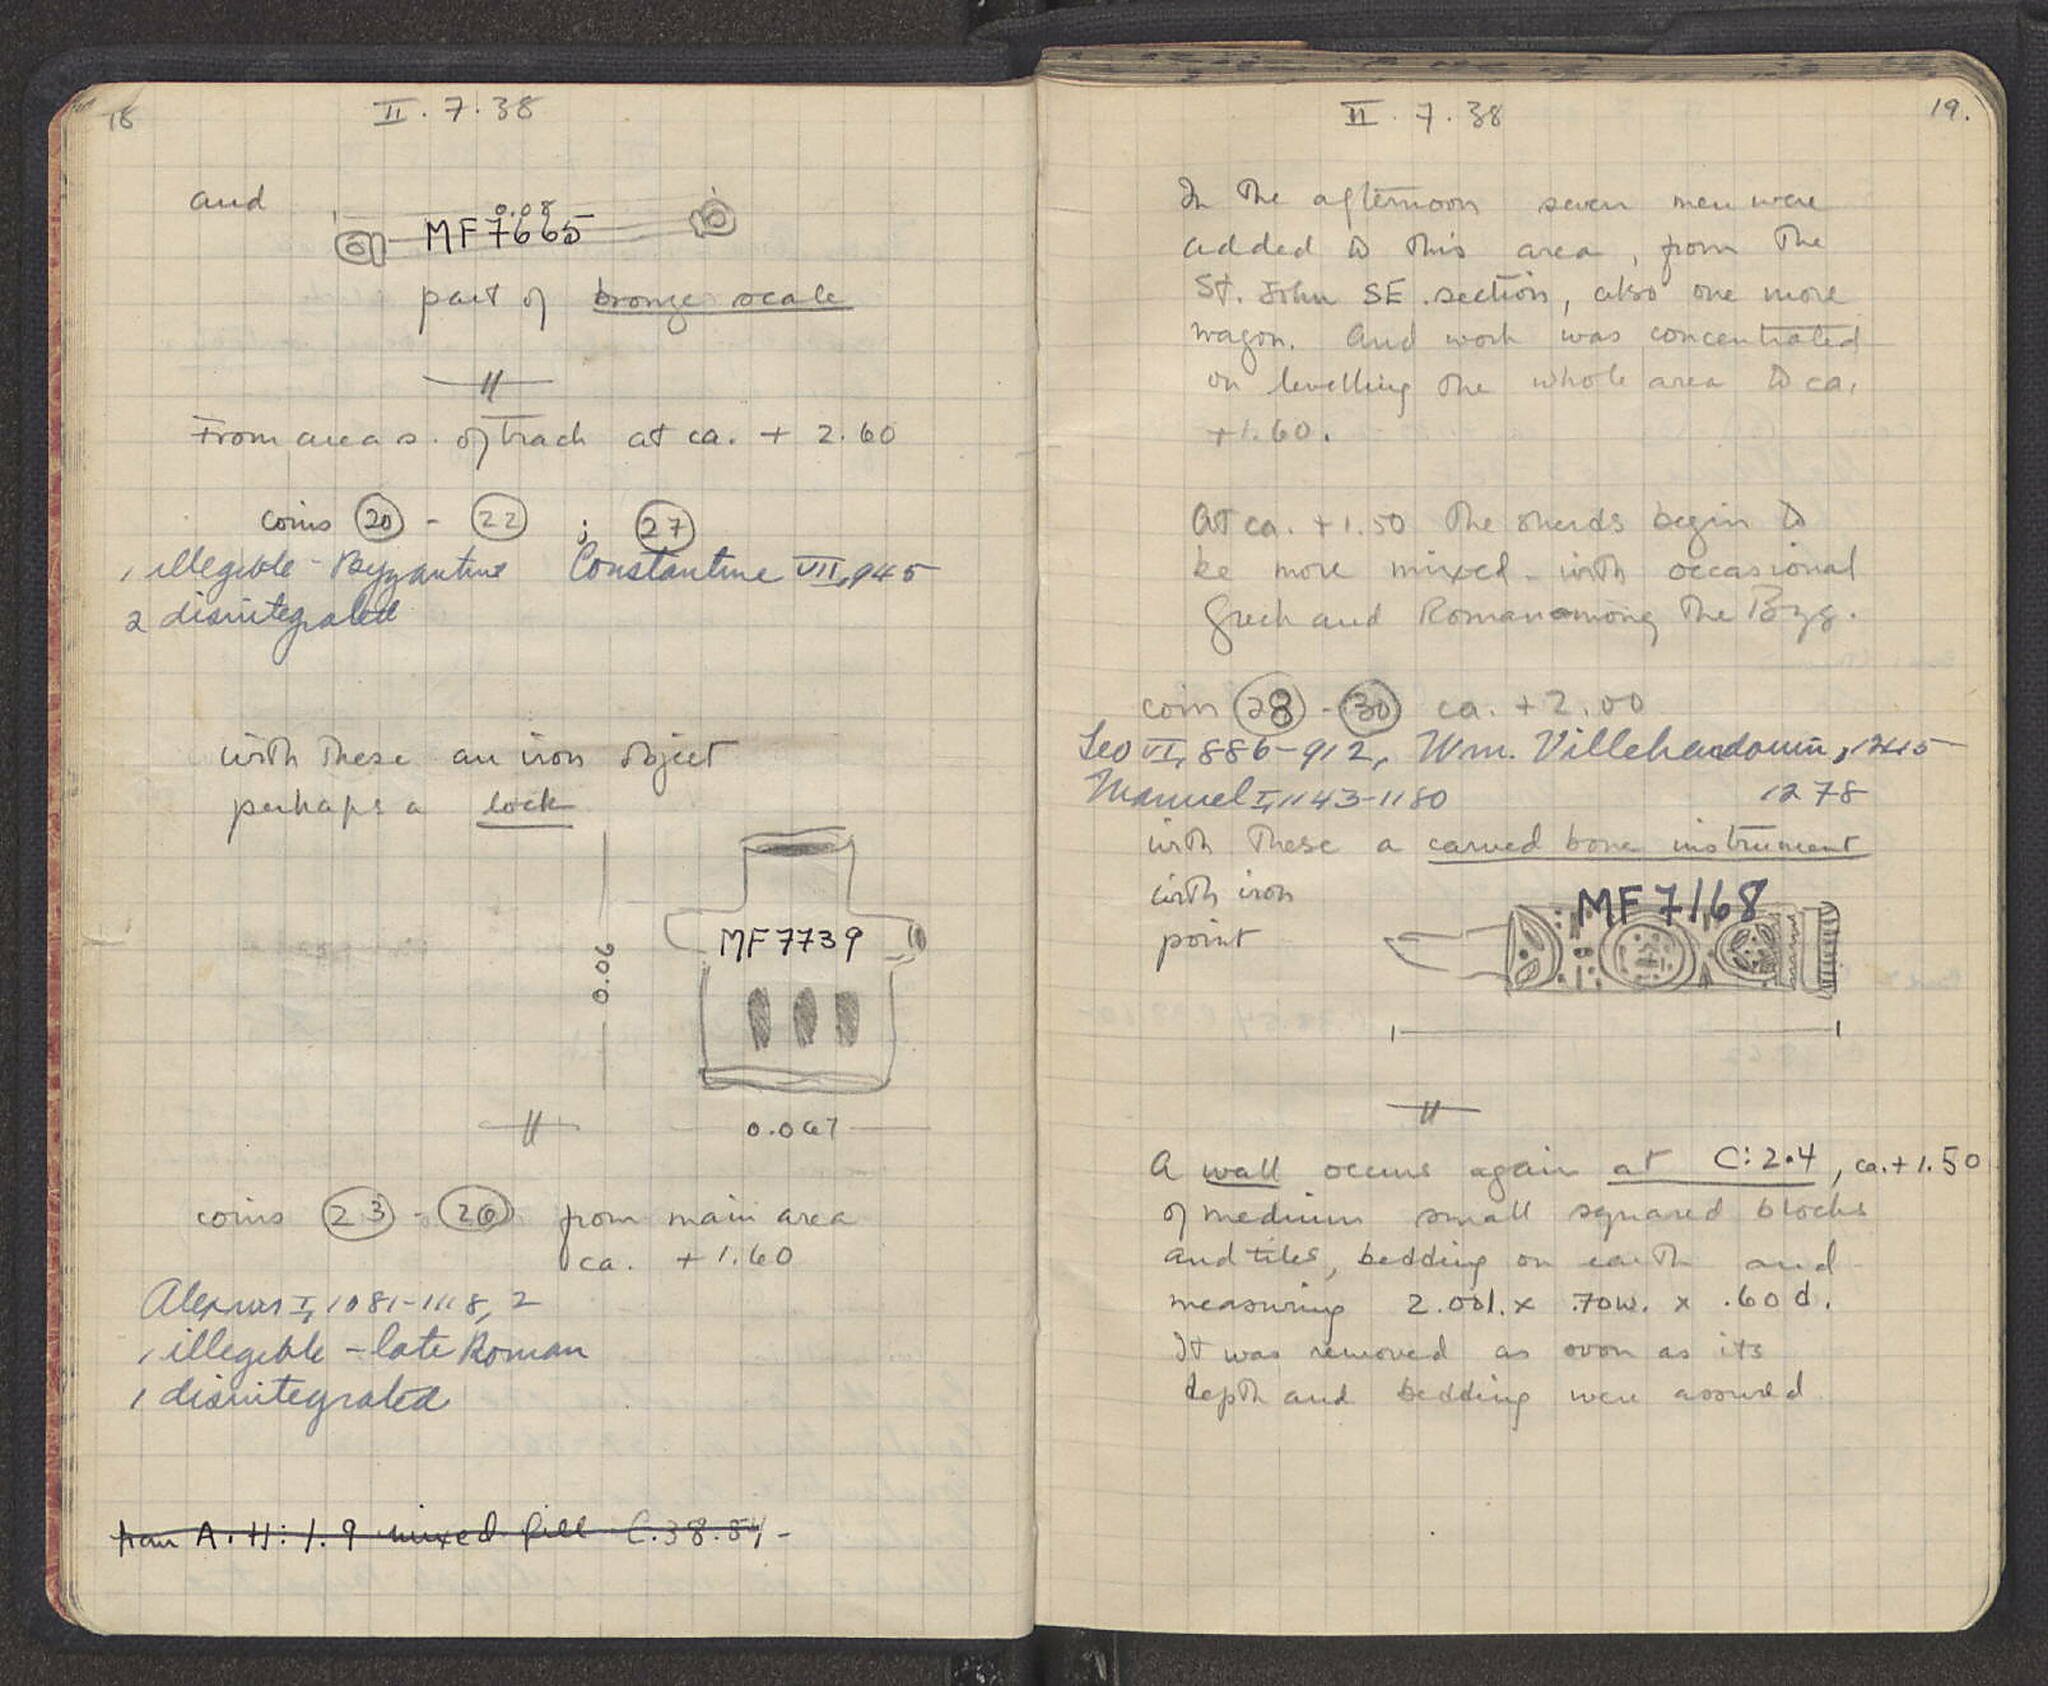 18
II. 7. 38
and
0.08
MF 7665
part of bronze scale
From area s. of track at ca. + 2.60
coins 20 - 22 ; 27
1 illegible - Byzantine Constantine VII, 945
2 disintegrated
with these an iron object
perhaps a lock
MF 7739
0.06
0.067
coins 23 - 26 from main area
ca. + 1.60
Alexius I, 1081-1118, 2
1 illegible - late Roman
1 disintegrated
from A. H: 1.9 mixed fill C.38.54 -
II. 7. 38
19.
In the afternoon seven men were
added to this area, from the
St. John SE. section, also one more
wagon. And work was concentrated
on levelling the whole area to ca.
+1.60.
At ca. +1.50 the sherds begin to
be more mixed - with occasional
Greek and Roman among the Byz.
coin 28 - 30 ca. +2.00
Leo VI, 886-912, Wm. Villehardouin, 1245
Manuel I, 1143-1180 1278
with these a carved bone instrument
with iron
point
MF 7168
A wall occurs again at C:2.4, ca.+1.50
of medium small squared blocks
and tiles, bedding on earth and
measuring 2.00l. x .70w. x .60d.
It was removed as soon as its
depth and bedding were assured